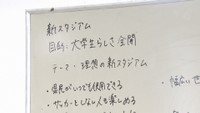 新スタジアム
目的：大学生らしさ全開
テーマ：理想の新スタジアム
・県民がいつでも使用できる
・サッカーをしない人も楽しめる
・幅広い世